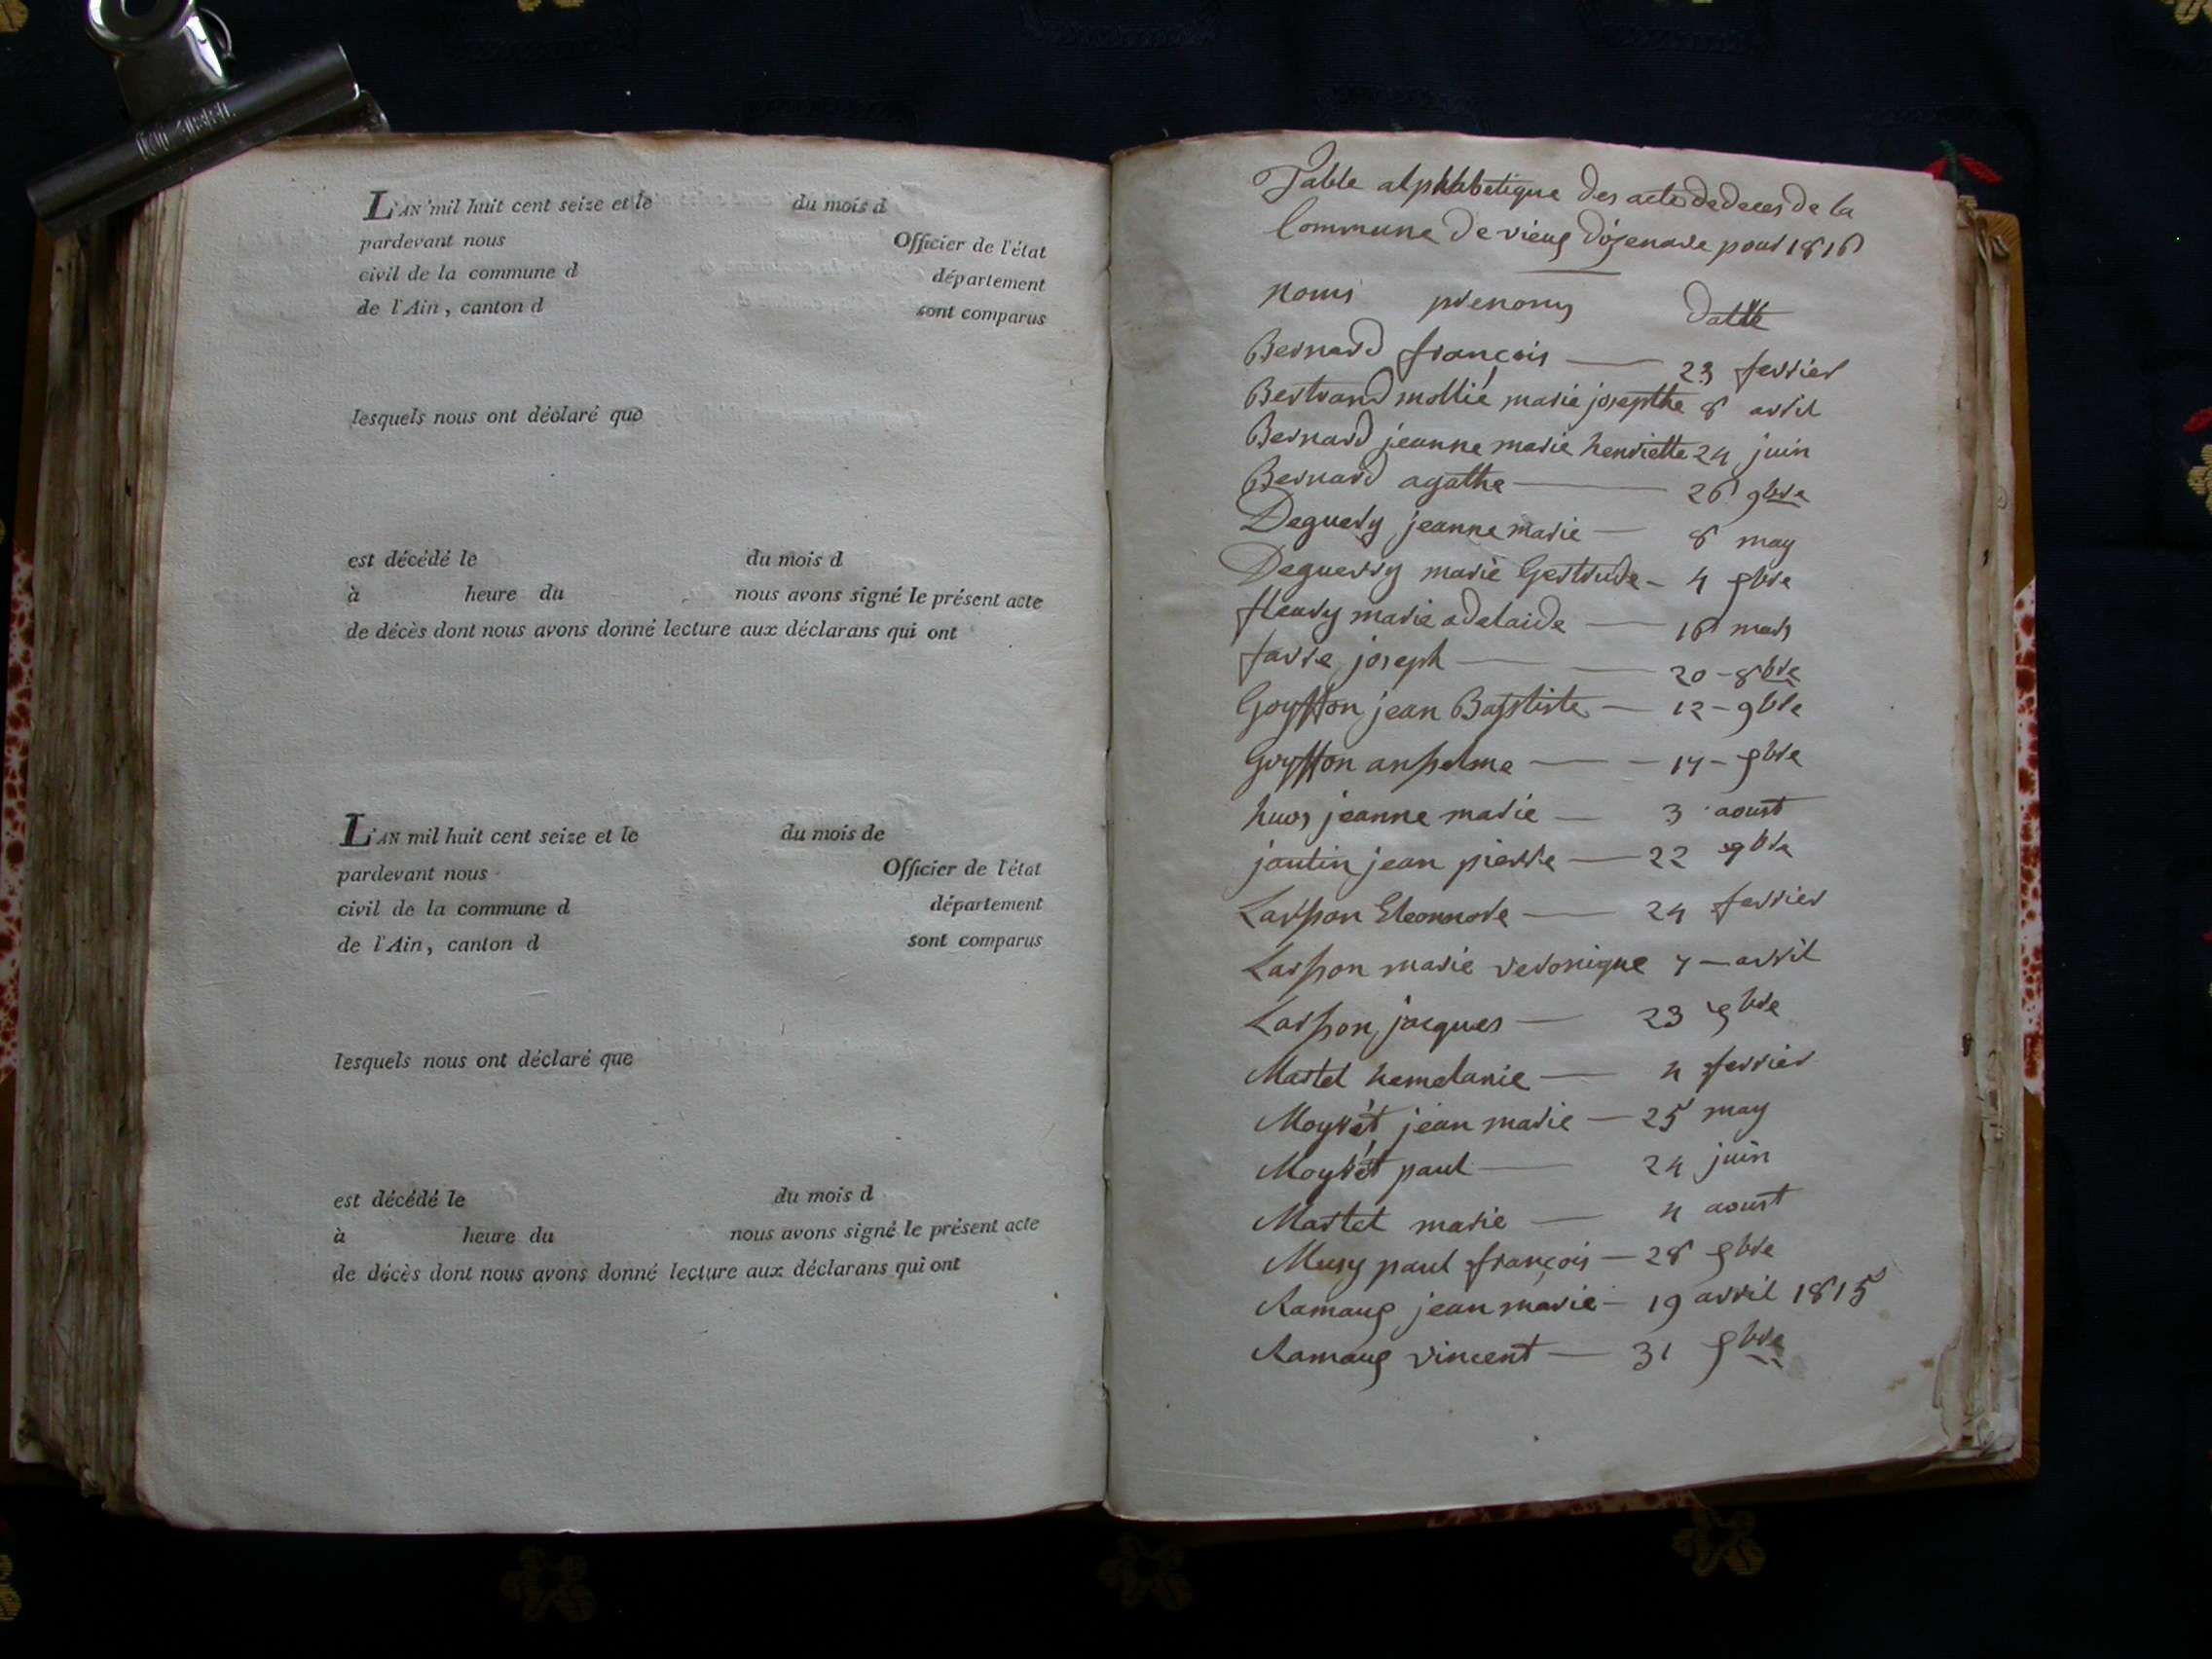 L'AN mil huit cent seize et le du mois d
pardevant nous Officier de l'état
civil de la commune d département
de l'Ain, canton d sont comparus
lesquels nous ont déclaré que
est décédé le du mois d
à heure du nous avons signé le présent acte
de décès dont nous avons donné lecture aux déclarans qui ont
L'AN mil huit cent seize et le du mois de
pardevant nous Officier de l'état
civil de la commune d département
de l'Ain, canton d sont comparus
lesquels nous ont déclaré que
est décédé le du mois d
à heure du nous avons signé le présent acte
de décès dont nous avons donné lecture aux déclarans qui ont
Table alphabetique des acte de deces de la
Commune de vieux d'izenave pour 1816
noms prenoms
Bernard françois — 23 fevrier
Bertrand mollié marie josepthe 8 avril
Bernard jeanne marie henriette 24 juin
Bernard agathe — 26 9bre
Deguery jeanne marie — 8 may
Deguerry marie Gertrude — 4 9bre
fleury marie adelaide — 16 mars
favre joseph — — 20 - 8bre
Goyffon jean Baptiste — 12 - 9bre
Goyffon anselme — - 17 - 9bre
jeanne marie — 3 aoust
jantin jean pierre — 22 9bre
Larson Eleonnore — 24 fevrier
Larson marie veronique 7 — avril
Larson jacques — 23 9bre
Martel — 4 fevrier
Moyrét jean marie — 25 may
Moyrét paul — 24 juin
Martel marie — 4 aoust
Musy paul françois — 28 9bre
Ramaux jean marie — 19 avril 1815
Ramaux vincent — 31 9bre